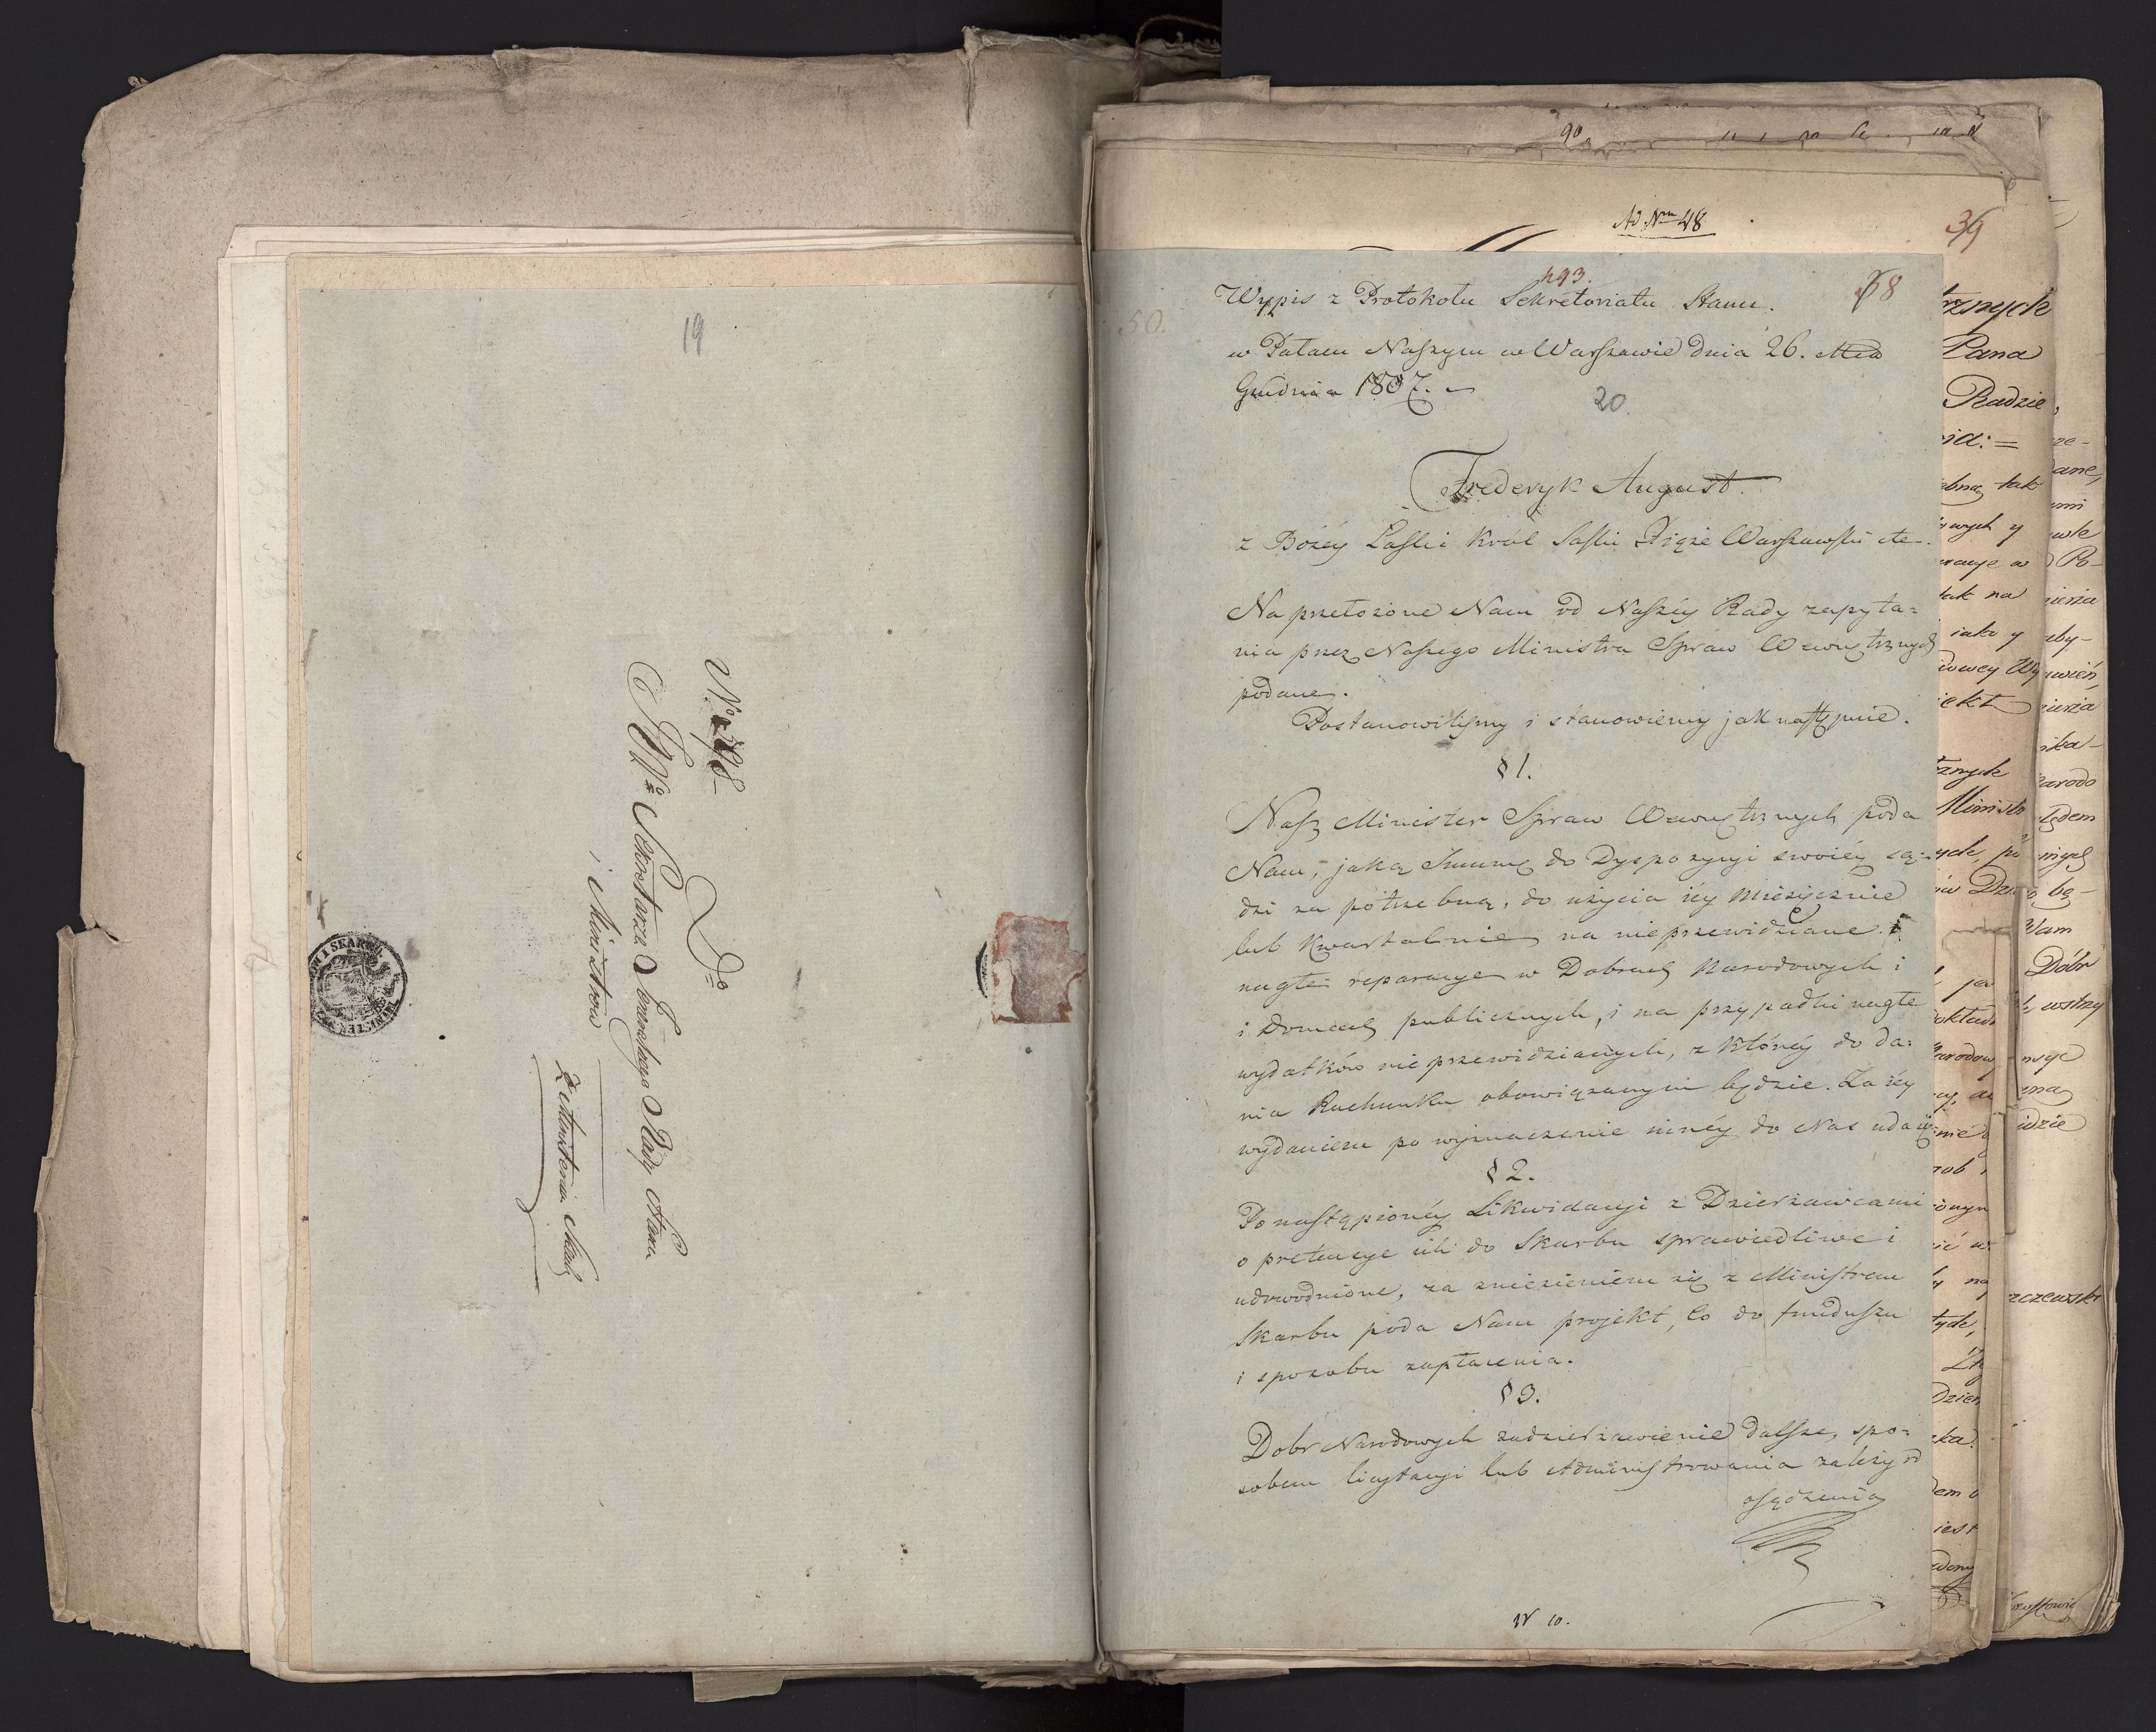 19
No 298
Do
JWo Sekretarza Jeneralnego Rady Stanu
i Ministrów
Z Ministerii Skarb
MINISTER
I SKARBU
90
Ad Nrm 48
39
50.
493.
58
Wypis z Protokołu Sekretariatu Stanu.
w Pałacu Naszym w Warszawie dnia 26. Mca
Grudnia 1807.
20.
Frederyk August.
z Bożéy Łaski Król Saski Xiąże Warszawski etc.
Na przełożone Nam od Naszéy Rady zapyta=
nia przez Naszego Ministra Spraw Wewnętrznych
podane.
Postanowiliśmy i stanowiemy jak następuie.
§ 1.
Nasz Minister Spraw Wewnętrznych poda
Nam, jaką Summę do Dyspozycyi swoiéy są=
dzi za potrzebną, do użycia iéy miesięcznie
lub kwartalnie na nieprzewidziane i
nagłe reparacye w Dobrach Narodowych i
i Domach publicznych, i na przypadki nagłe
wydatków nieprzewidzianych, z któréy do da=
nia Rachunku obowiązanym będzie. Za iéy
wydaniem po wyznaczenie innéy do Nas uda się
§ 2.
Po nastąpionéy Likwidacyi z Dzierżawcami
o pretensye ich do Skarbu sprawiedliwe i
udowodnione, za zniesieniem się z Ministrem
Skarbu poda Nam projekt, co do funduszu
i sposobu zapłacenia.
§ 3.
Dobr Narodowych zadzierżawienie dalsze, spo=
sobem licytacyi lub Administrowania zależy od
osądzenia
N 10.
trznych
Pana
Radzie,
nia: =
tak
iako y
Ministr
Dóbr
wstrzy